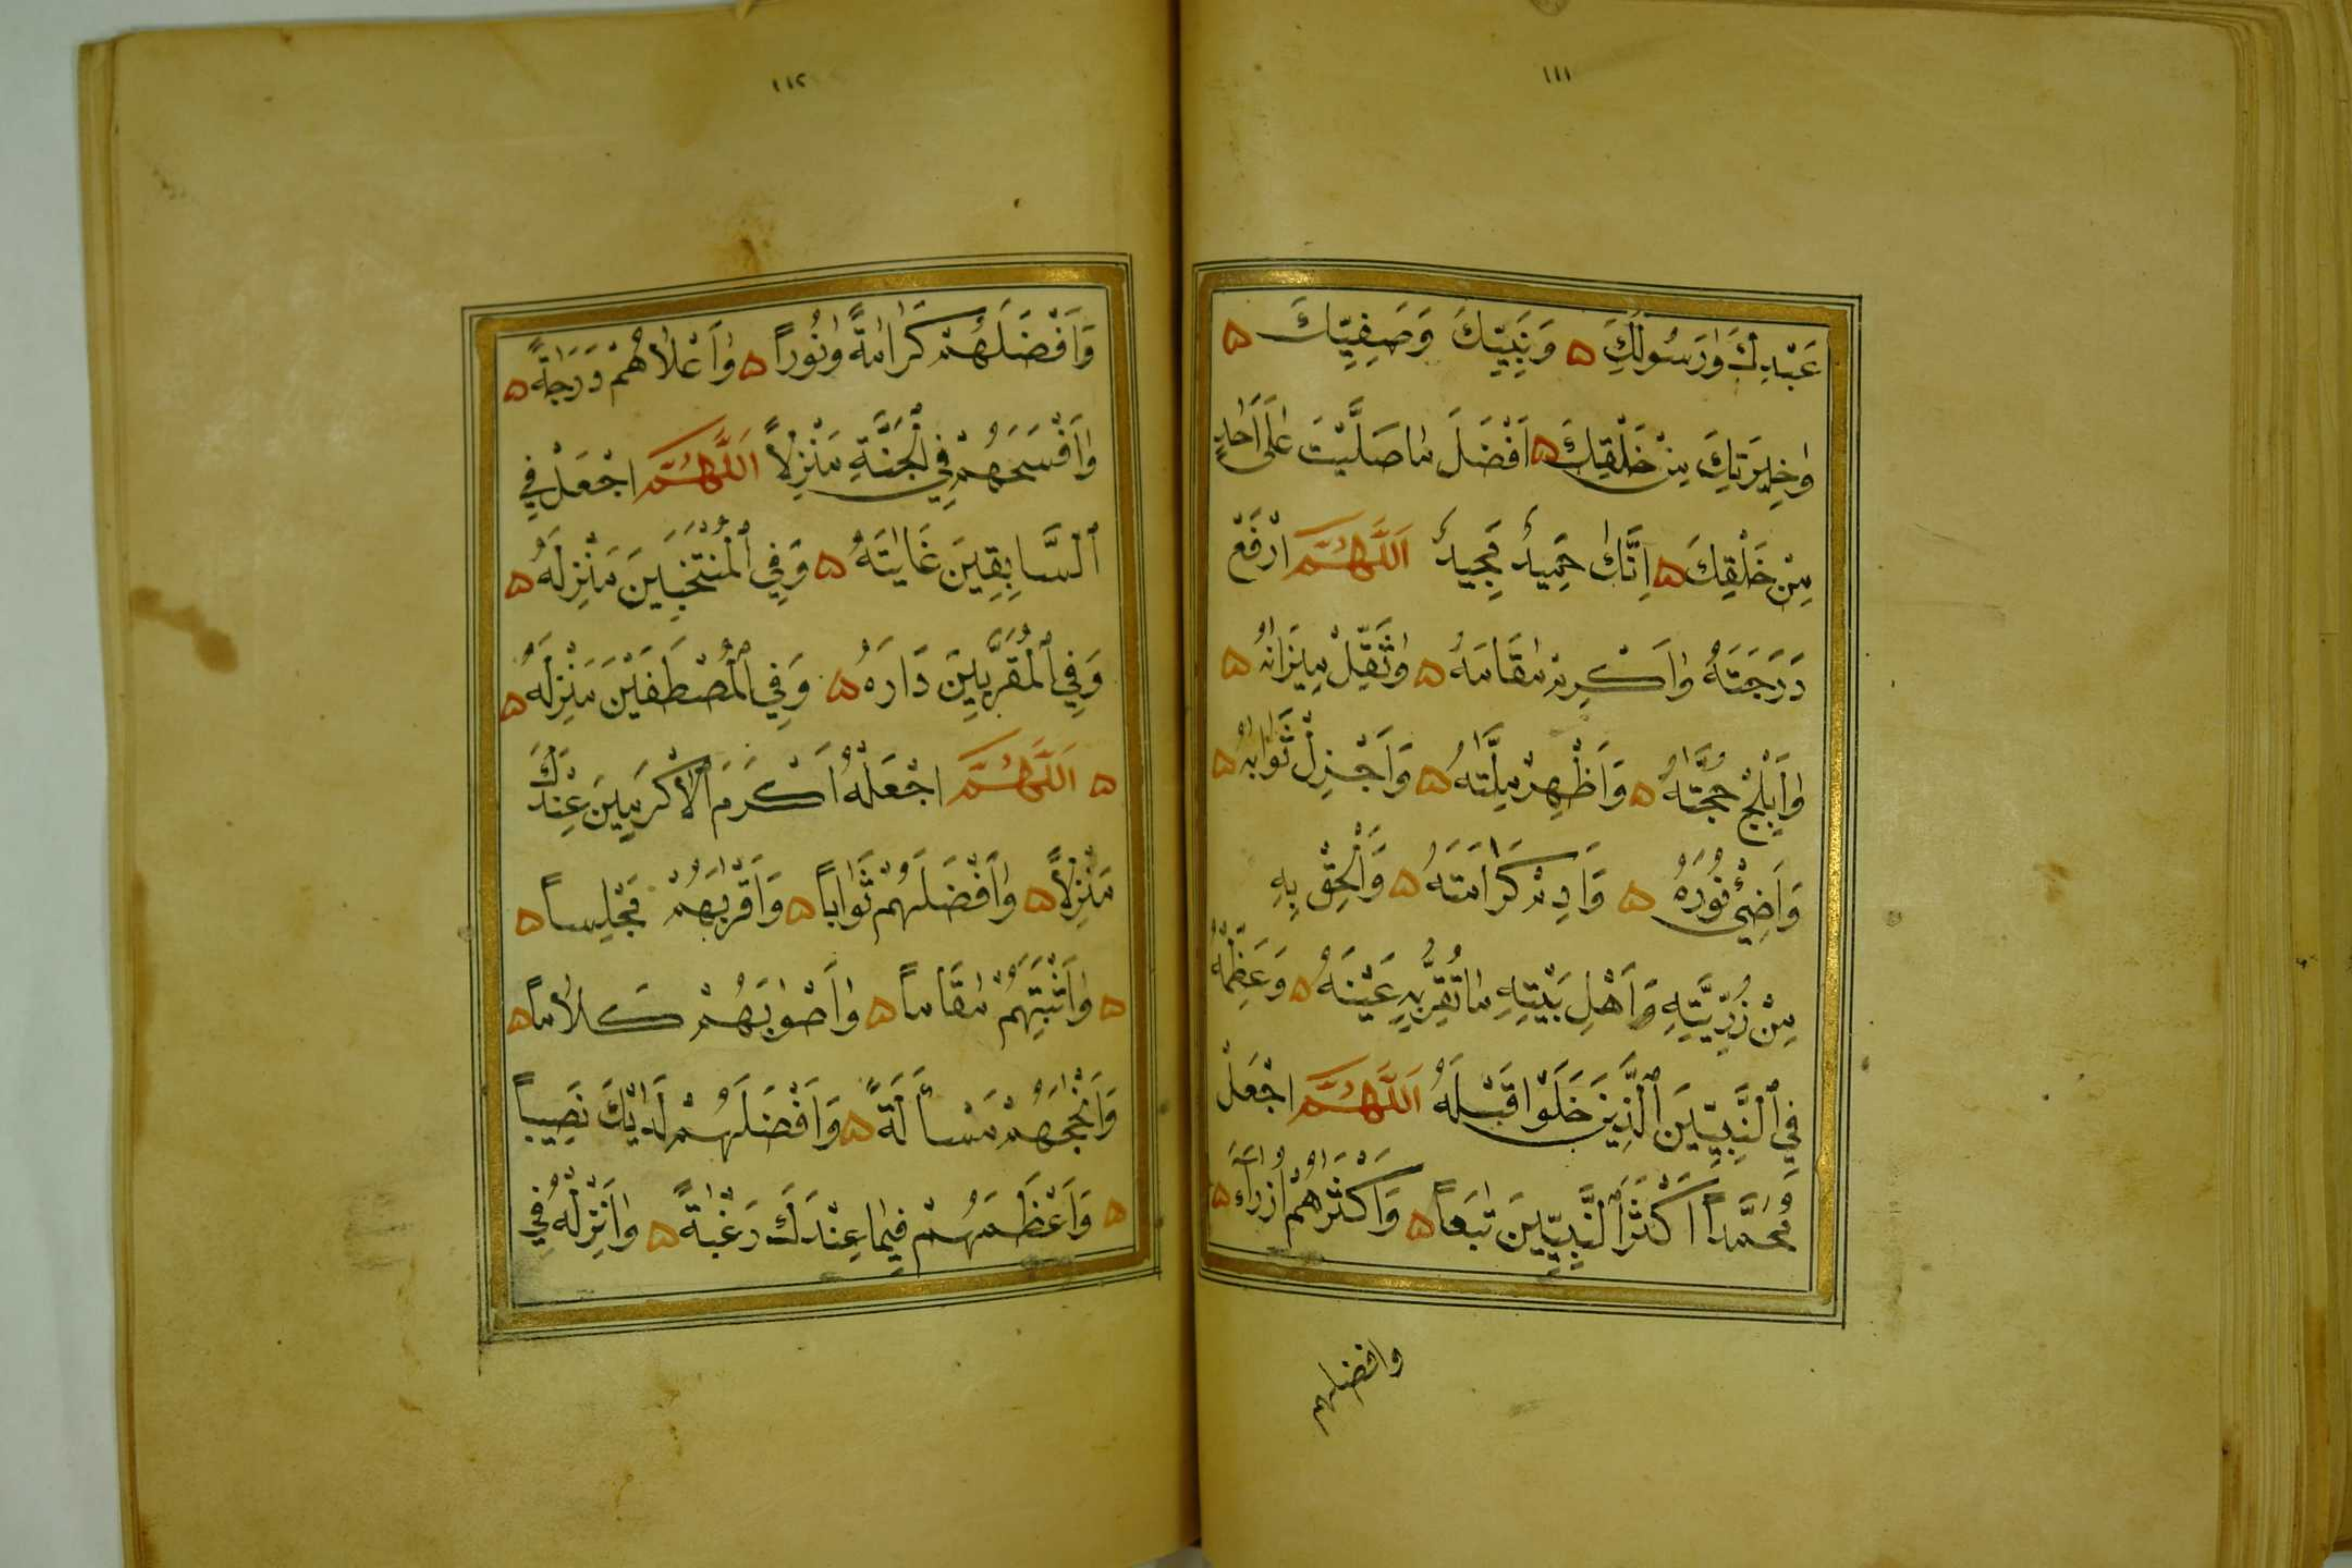 ١١١
عَبْدِكَ وَرَسُولِكَ ۵ وَنَبِيِّكَ وَصَفِيِّكَ ۵
وَخِيرَتِكَ مِنْ خَلْقِكَ ۵ اَفْضَلَ مَا صَلَّيْتَ عَلَى اَحَدٍ
مِنْ خَلْقِكَ ۵ اِنَّكَ حَمِيدٌ مَجِيدٌ اَللَّهُمَّ ارْفَعْ
دَرَجَتَهُ وَاَكْرِمْ مَقَامَهُ ۵ وَثَقِّلْ مِيزَانَهُ ۵
وَاَبْلِجْ حُجَّتَهُ ۵ وَاَظْهِرْ مِلَّتَهُ ۵ وَاَجْزِلْ ثَوَابَهُ ۵
وَاَضِئْ نُورَهُ ۵ وَاَدِمْ كَرَامَتَهُ ۵ وَاَلْحِقْ بِهِ
مِنْ ذُرِّيَّتِهِ وَاَهْلِ بَيْتِهِ مَا تُقِرُّ بِهِ عَيْنَهُ ۵ وَعَظِّمْهُ
فِي ٱلنَّبِيِّينَ ٱلَّذِينَ خَلَوْا قَبْلَهُ اَللَّهُمَّ اجْعَلْ
مُحَمَّداً اَكْثَرَ ٱلنَّبِيِّينَ تَبَعاً ۵ وَاَكْثَرَهُمْ اُزَرَاءَ ۵
وافضلهم
١١٢
وَاَفْضَلَهُمْ كَرَامَةً وَنُوراً ۵ وَاَعْلَاهُمْ دَرَجَةً ۵
وَاَفْسَحَهُمْ فِي ٱلْجَنَّةِ مَنْزِلاً اَللَّهُمَّ اجْعَلْ فِي
ٱلسَّابِقِينَ غَايَتَهُ ۵ وَفِي ٱلْمُنْتَخَبِينَ مَنْزِلَهُ ۵
وَفِي ٱلْمُقَرَّبِينَ دَارَهُ ۵ وَفِي ٱلْمُصْطَفَيْنَ مَنْزِلَهُ ۵
۵ اَللَّهُمَّ اجْعَلْهُ اَكْرَمَ ٱلْاَكْرَمِينَ عِنْدَكَ
مَنْزِلاً ۵ وَاَفْضَلَهُمْ ثَوَاباً ۵ وَاَقْرَبَهُمْ مَجْلِساً ۵
۵ وَاَثْبَتَهُمْ مَقَاماً ۵ وَاَصْوَبَهُمْ كَلَاماً ۵
وَاَنْجَحَهُمْ مَسْأَلَةً ۵ وَاَفْضَلَهُمْ لَدَيْكَ نَصِيباً
۵ وَاَعْظَمَهُمْ فِيمَا عِنْدَكَ رَغْبَةً ۵ وَاَنْزِلْهُ فِي